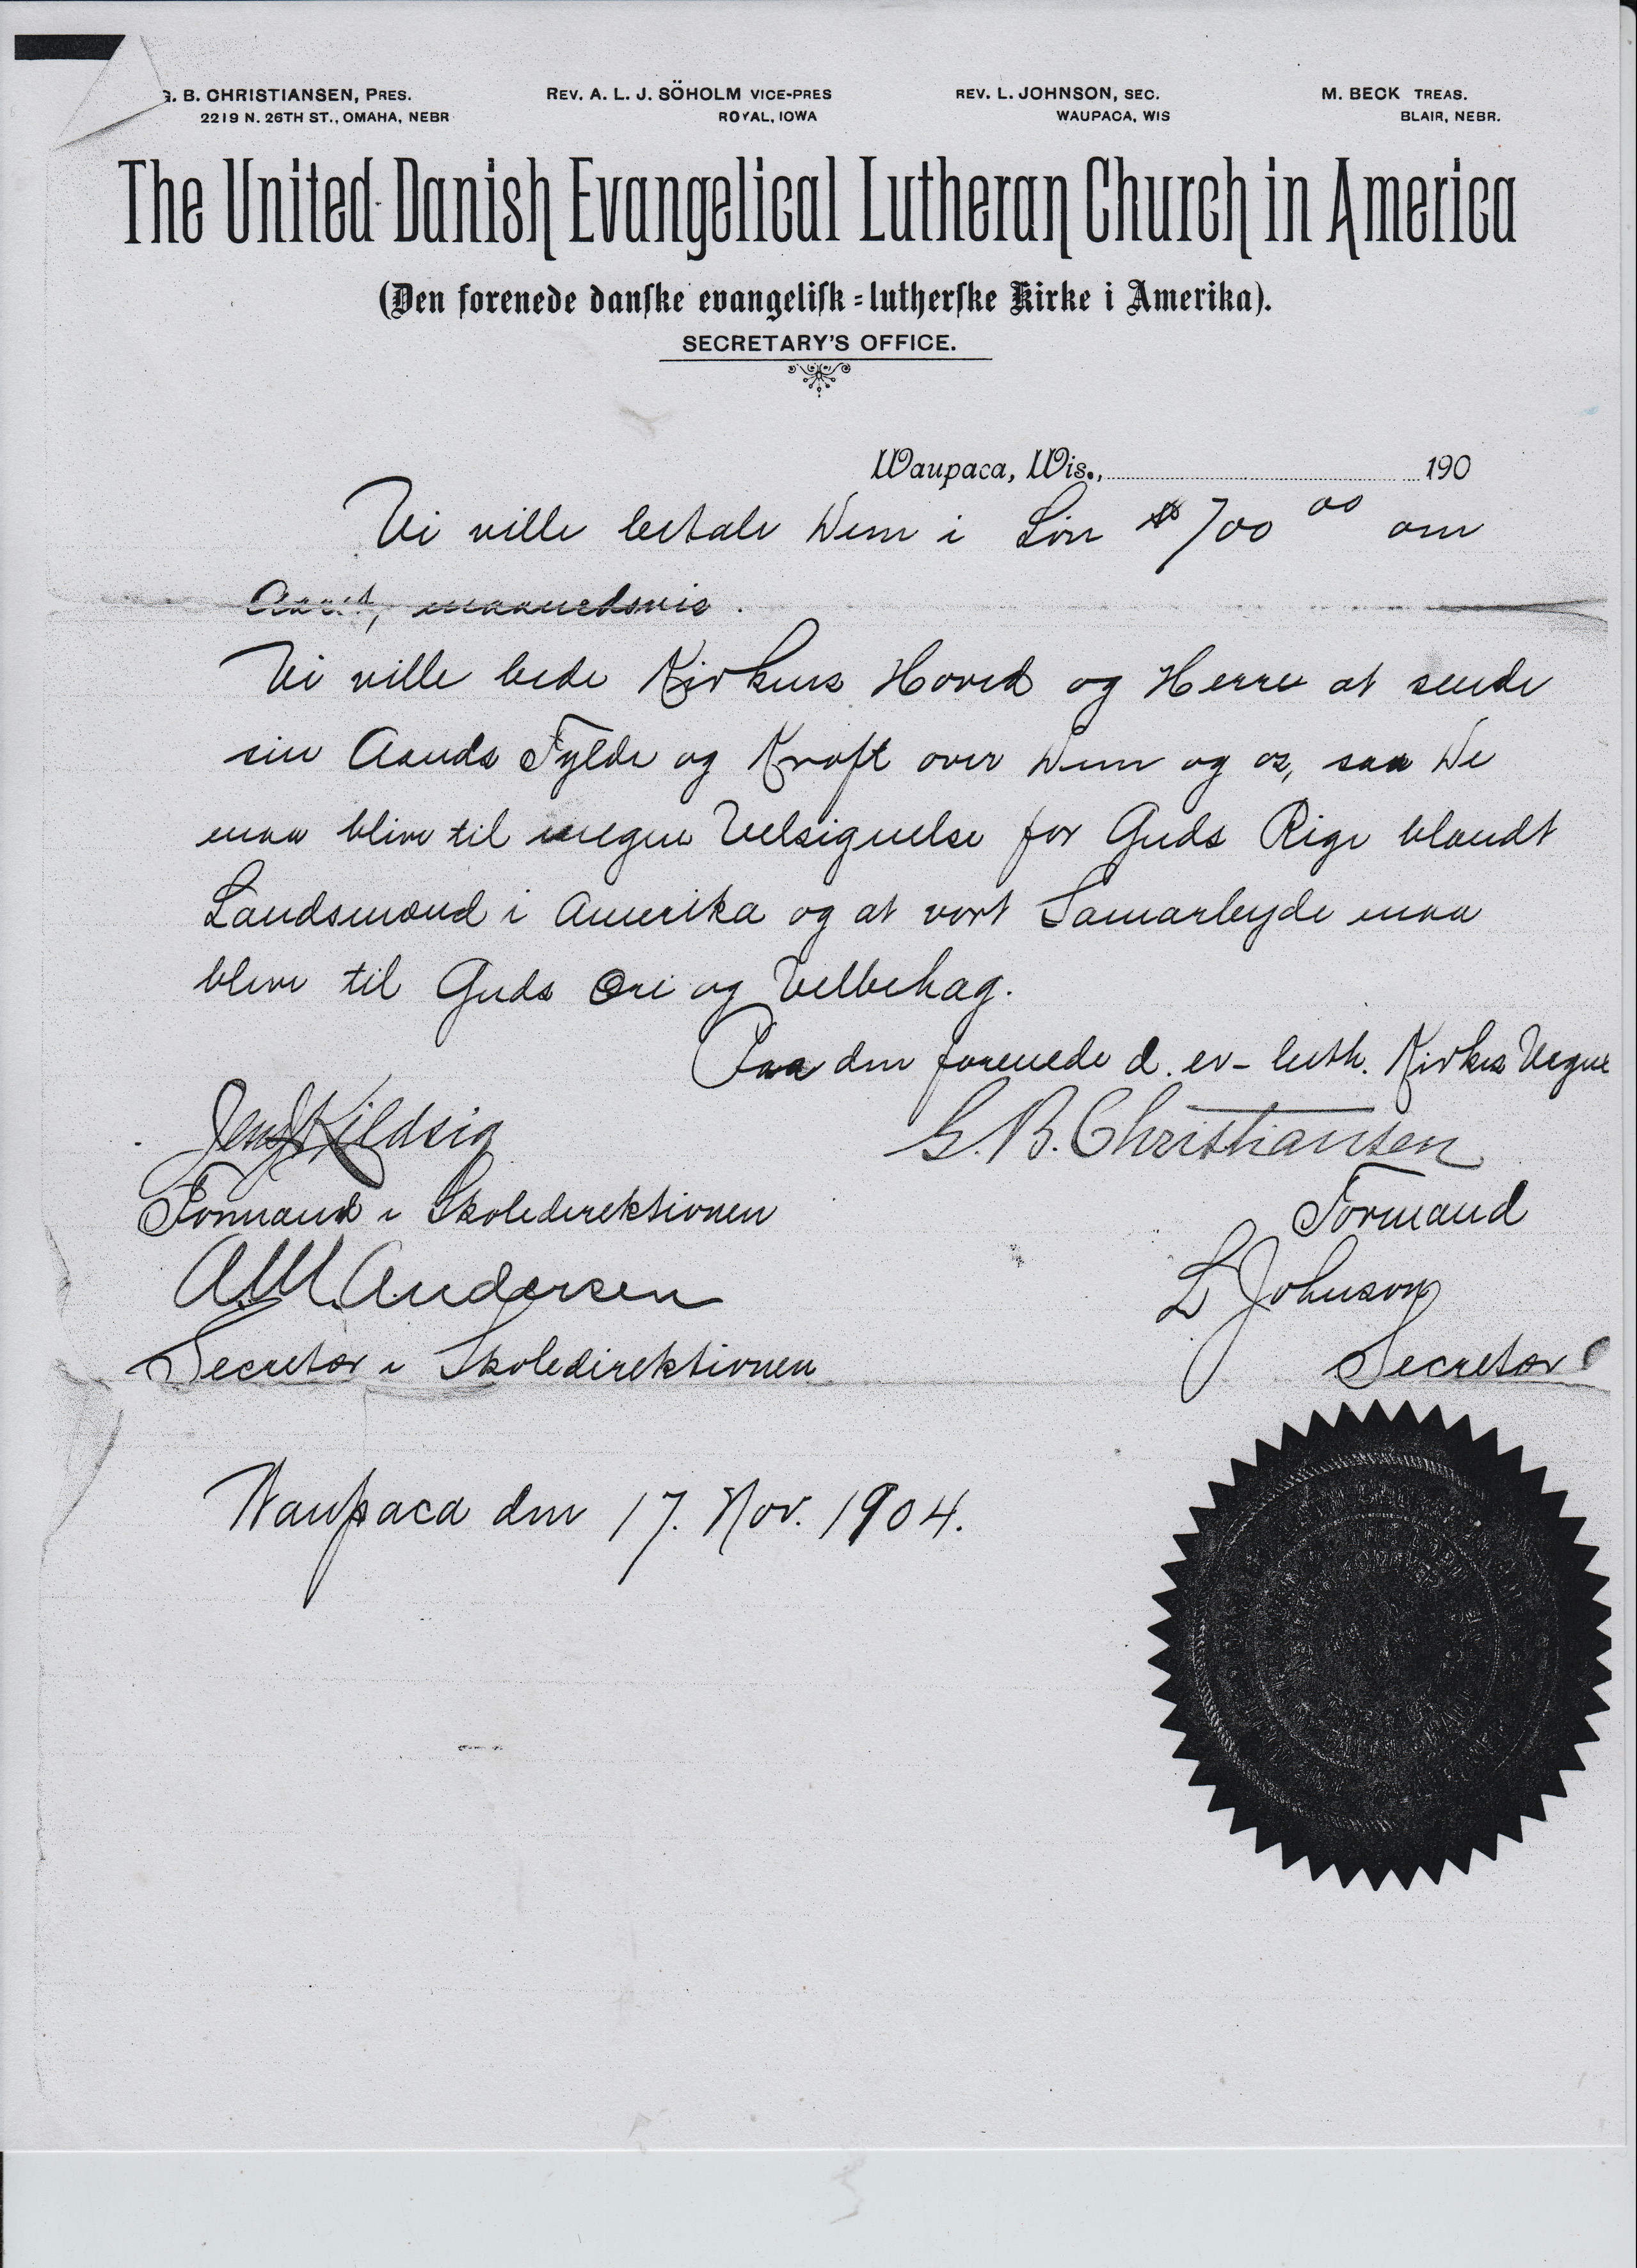 G. B. CHRISTIANSEN, PRES.
2219 N. 26TH ST., OMAHA, NEBR
REV. A. L. J. SÖHOLM VICE-PRES
ROYAL, IOWA
REV. L. JOHNSON, SEC.
WAUPACA, WIS
M. BECK TREAS.
BLAIR, NEBR.
The United Danish Evangelical Lutheran Church in America
(Den forenede danske evangelisk-lutherske Kirke i Amerika).
SECRETARY'S OFFICE.
Waupaca, Wis., 190
Vi ville betale Dem i Løn $700 00 om
Aaret, maanedsvis.
Vi ville bede Kirkens Hoved og Herre at sende
sin Aands Fylde og Kraft over Dem og os, saa De
maa blive til megen Velsignelse for Guds Rige blandt
Landsmænd i Amerika og at vort Samarbejde maa
blive til Guds Ære og Velbehag.
Paa den forenede d. ev-luth. Kirkes Vegne
Jens Kildsig
Formand i Skoledirektionen
A. M. Andersen
Secretær i Skoledirektionen
G. B. Christiansen
Formand
L Johnson
Secretær
Waupaca den 17. Nov. 1904.